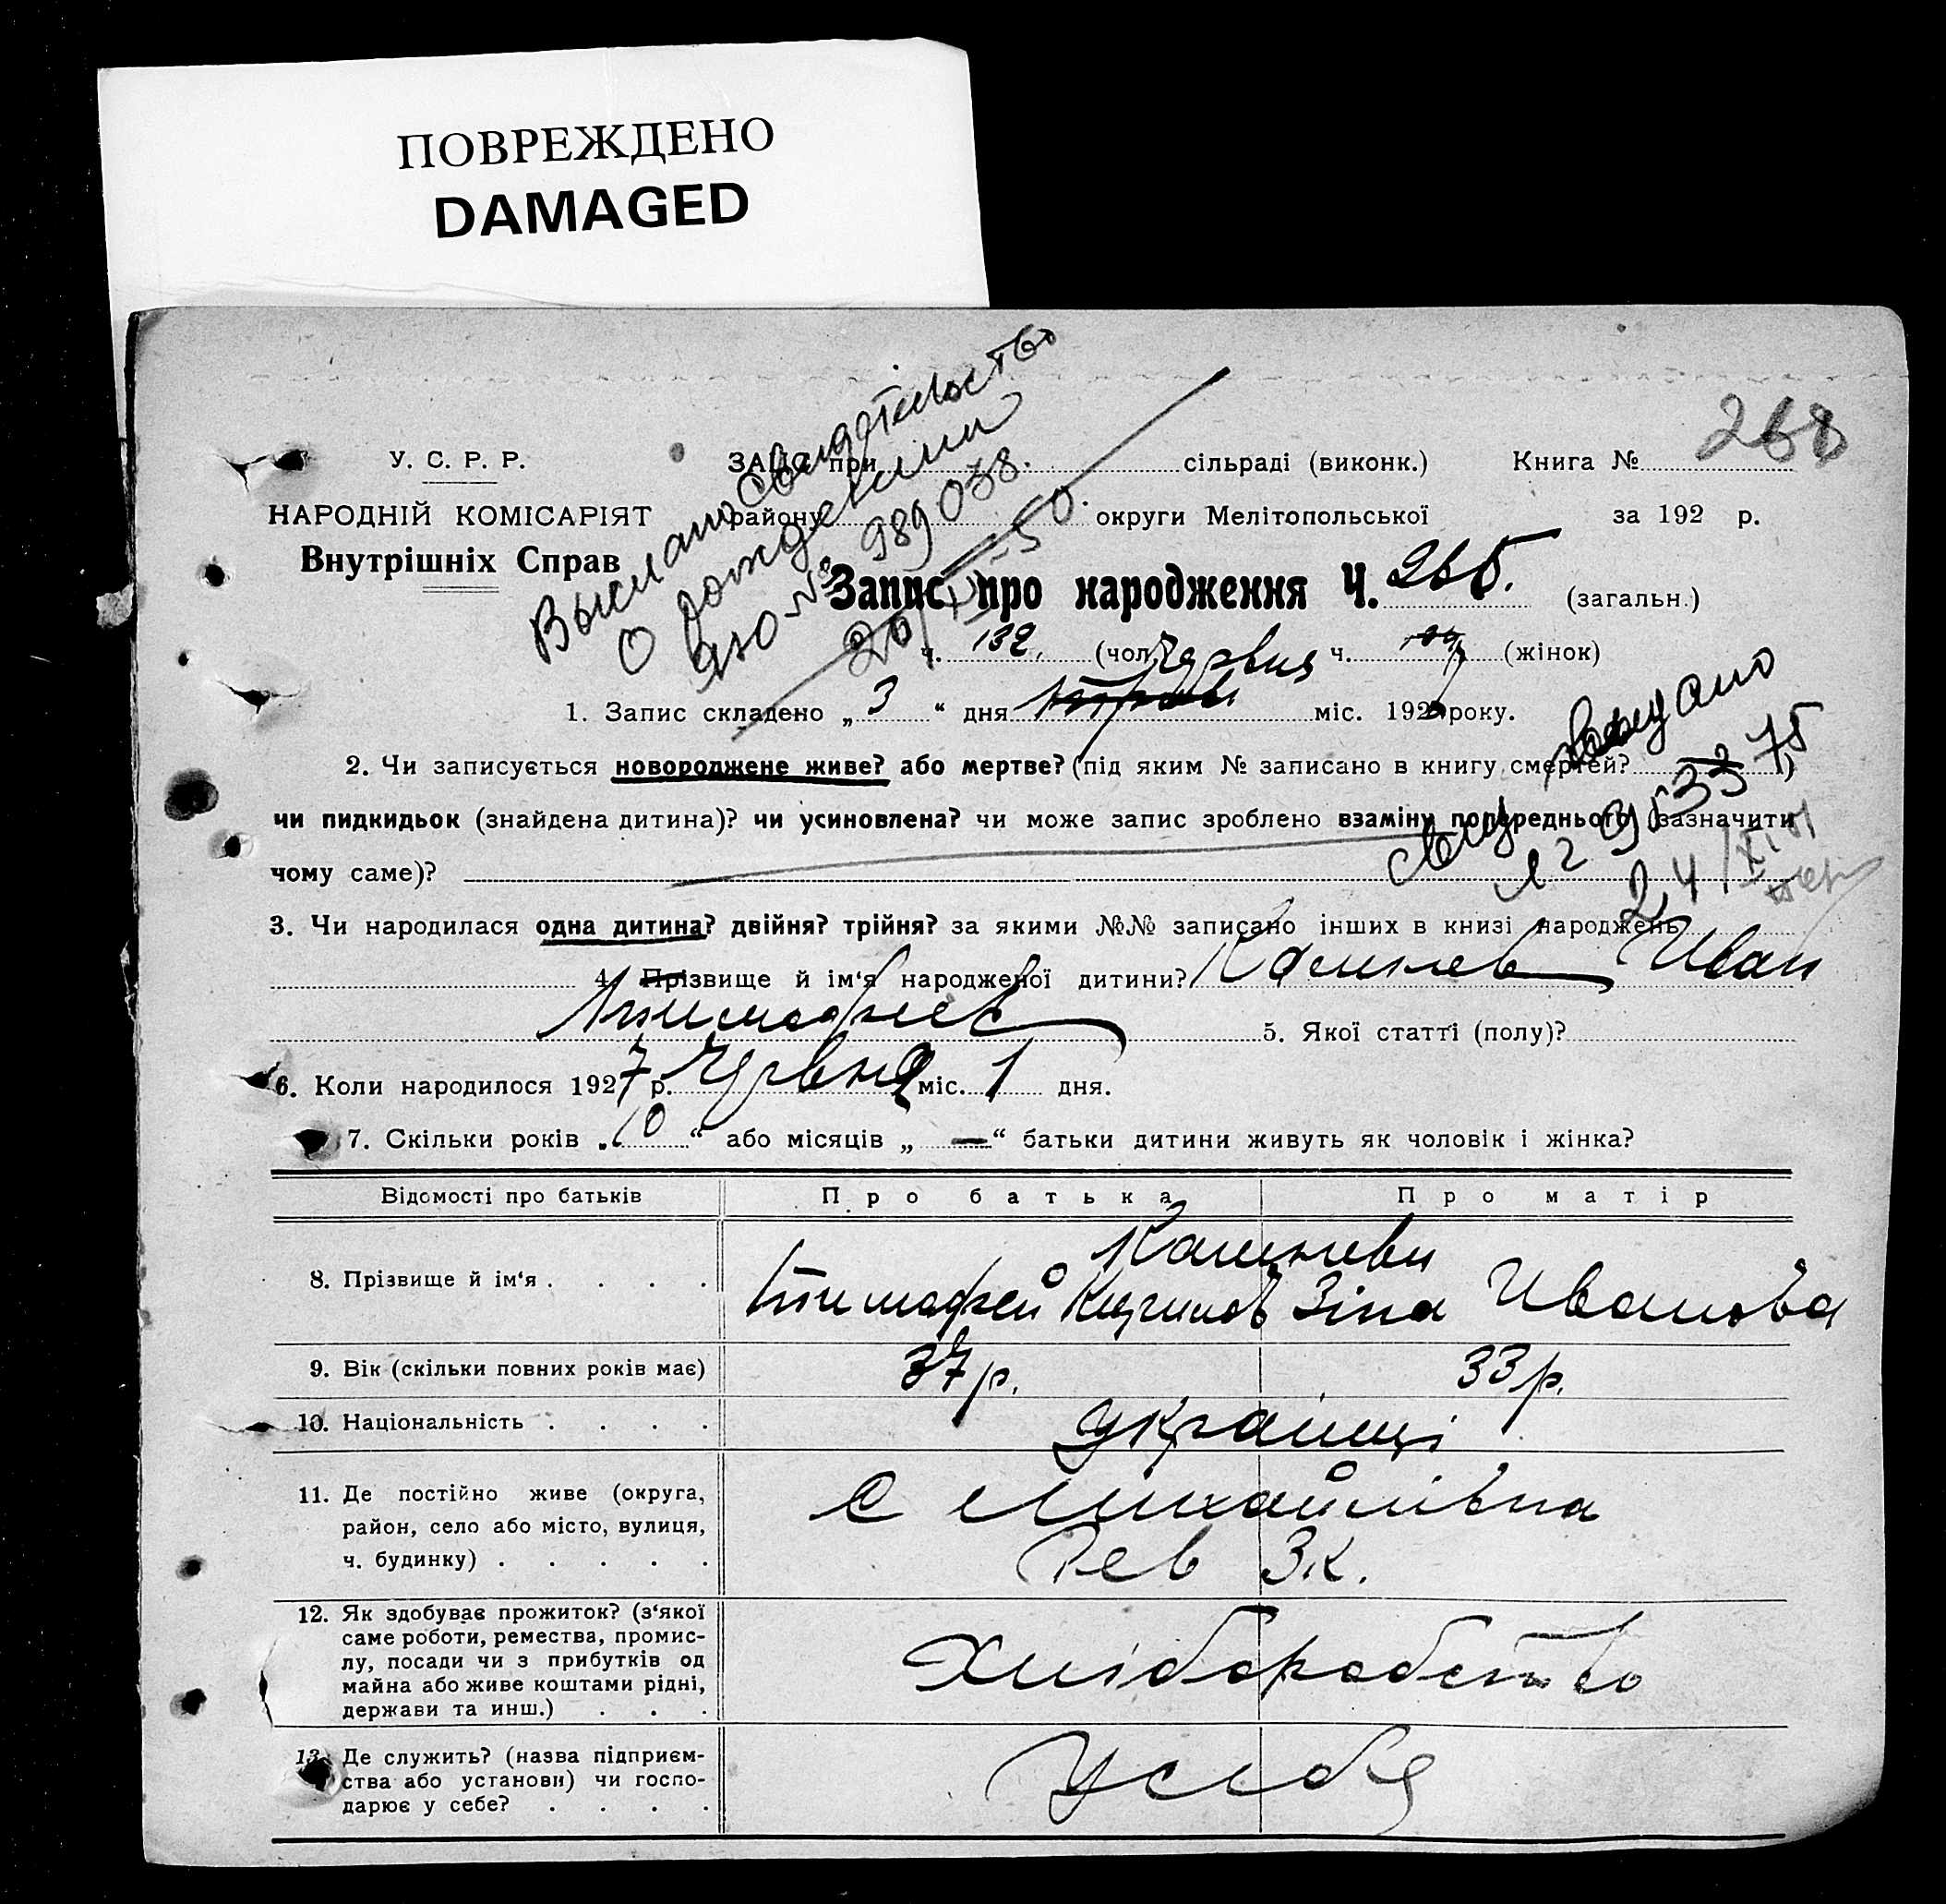 ПОВРЕЖДЕНО
DAMAGED
Выслано свидетельство
о рождении
ЯЮ № 989038.
50.
268
У. С. Р. Р.
ЗАЦС при сільраді (виконк.) Книга №
НАРОДНІЙ КОМІСАРІЯТ району округи Мелітопольської за 192 р.
Внутрішніх Справ
Запис про народження Ч. 265. (загальн.)
ч. 132. (чол.) ч. (жінок)
Червня
1. Запис складено „ 3 “ дня міс. 1927 року.
2. Чи записується новороджене живе? або мертве? (під яким № записано в книгу смертей? — )
чи пидкидьок (знайдена дитина)? чи усиновлена? чи може запис зроблено взаміну попереднього (зазначити
чому саме)?
24/XI
3. Чи народилася одна дитина? двійня? трійня? за якими №№ записано інших в книзі народжень
4. Прізвище й ім‘я народженої дитини? Иван
Тимофеев 5. Якої статті (полу)?
6. Коли народилося 1927 р. Червня міс. 1 дня.
7. Скільки років „ 10 “ або місяців „ — “ батьки дитини живуть як чоловік і жінка?
Відомості про батьків Про батька Про матір
8. Прізвище й ім‘я . . . .
Тимофей Кирилов Зіна Иванова
9. Вік (скільки повних років має) 37 р. 33 р.
10. Національність . . . . українці
11. Де постійно живе (округа,
район, село або місто, вулиця,
ч. будинку) . . . . .
с Михайлівка
Рев 3 к.
12. Як здобуває прожиток? (з‘якої
саме роботи, ремества, промис-
лу, посади чи з прибутків од
майна або живе коштами рідні,
держави та инш.) . . .
Хліборобство
13. Де служить? (назва підприєм-
ства або установи) чи госпо-
дарює у себе? . . . .
У себе